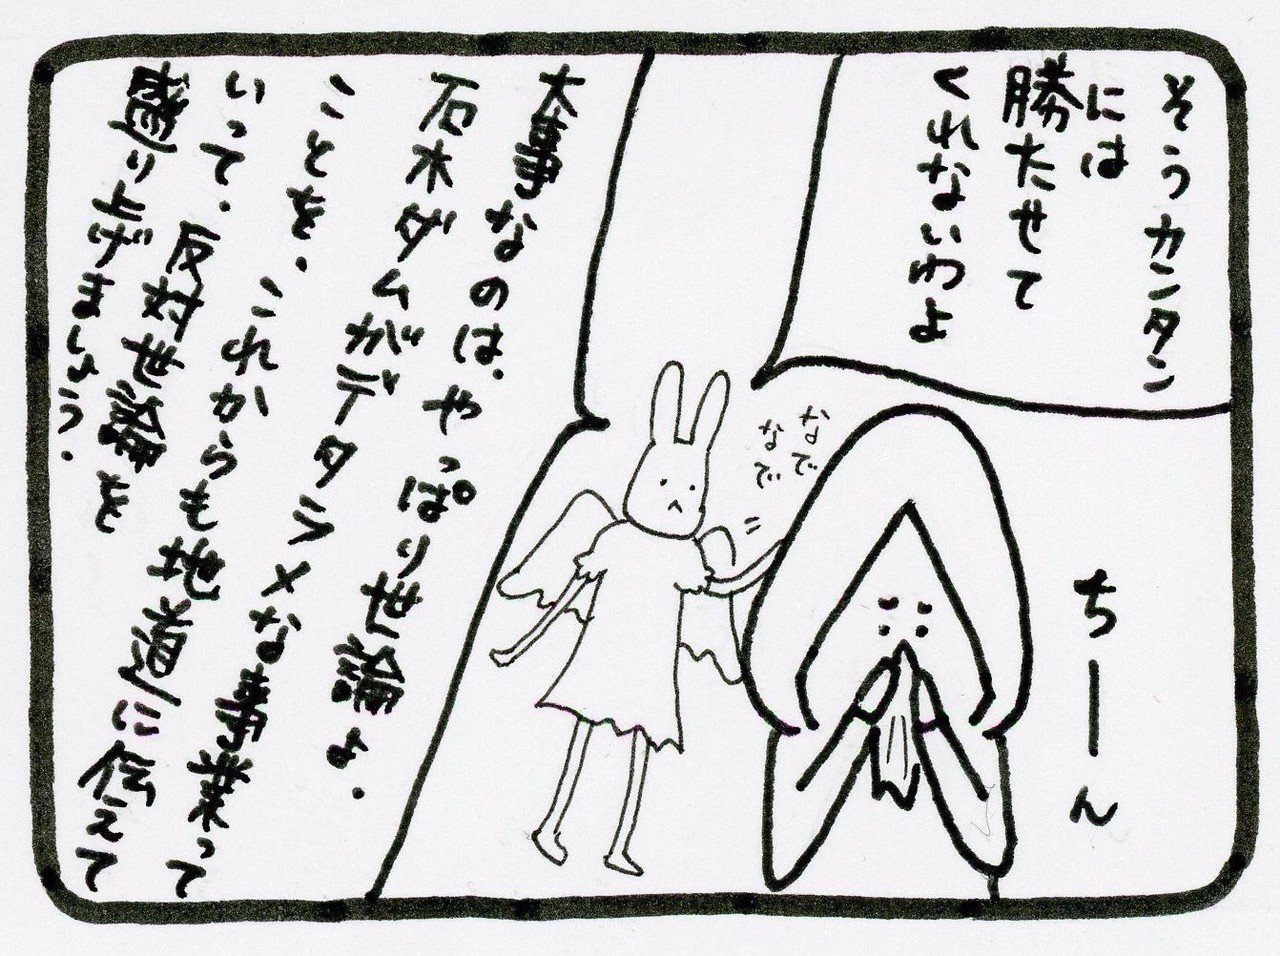 そうカンタン
には
勝たせて
くれないわよ
なで
なで
ちーん
大事なのは、やっぱり世論よ。
石木ダムがデタラメな事業って
ことを、これからも地道に伝えて
いって、反対世論を
盛り上げましょう。